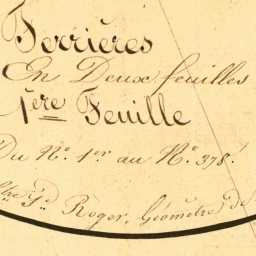 Ferrières
En Deux feuilles
1ère Feuille
Du N°. 1er au N°. 378.
Roger, Géomètre de